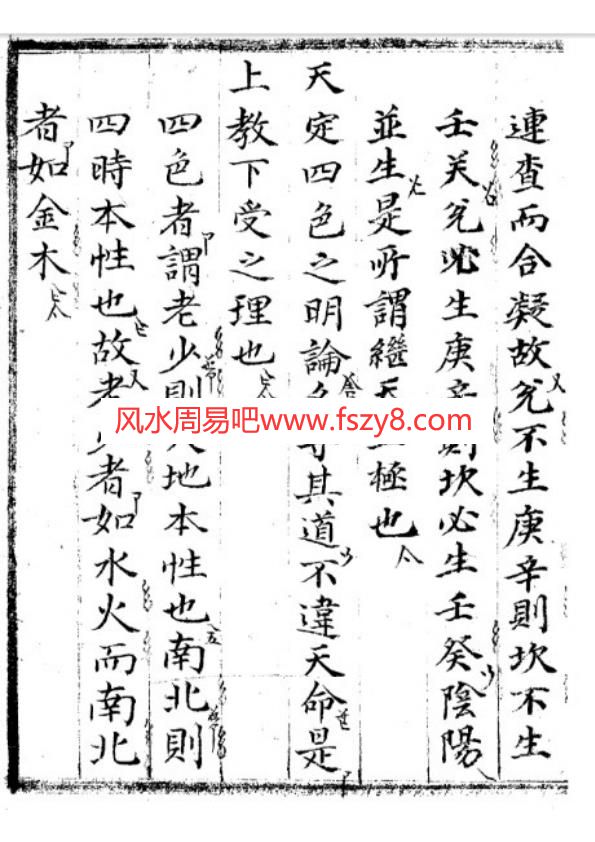 連查而合凝故兊不生庚辛則坎不生
壬关兊兊生庚辛則坎必生壬癸陰陽
並生是所謂繼天立極也
天定四色之明論 其道不違天命是
上教下受之理也
四色者謂老少則天地本性也南北則
四時本性也故老少者如水火而南北
者如金木
风水周易吧www.fszy8.com